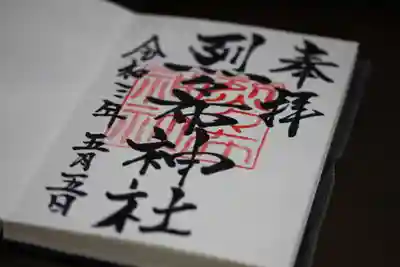 奉拝
烈々布神社
令和三年
五月五日